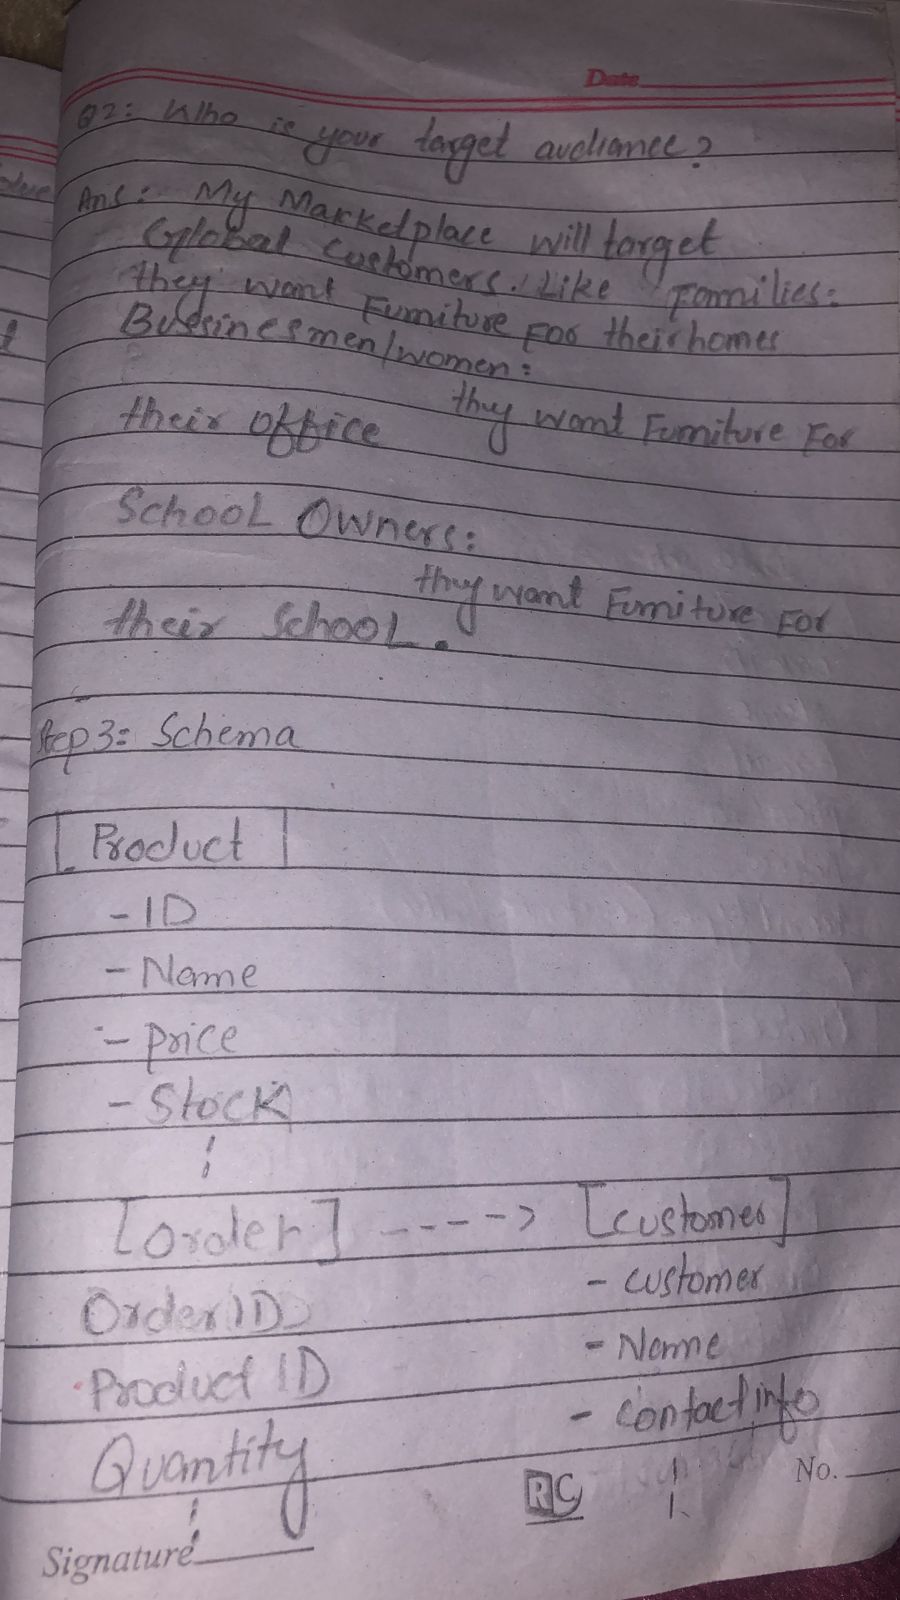 Date
Q2: Who is your target audiance?
Ans: My Marketplace will target
Global Customers. Like Families:
they want Furniture For their homes
Bussinesmen/women:
they want Furniture For
their office
School Owners:
they want Furniture For
their School.
Step 3: Schema
[Product]
- ID
- Name
- Price
- Stock
[order] ----> [customer]
- customer
Order ID
- Name
Product ID
- contact info
Quantity
RC
No.
Signature